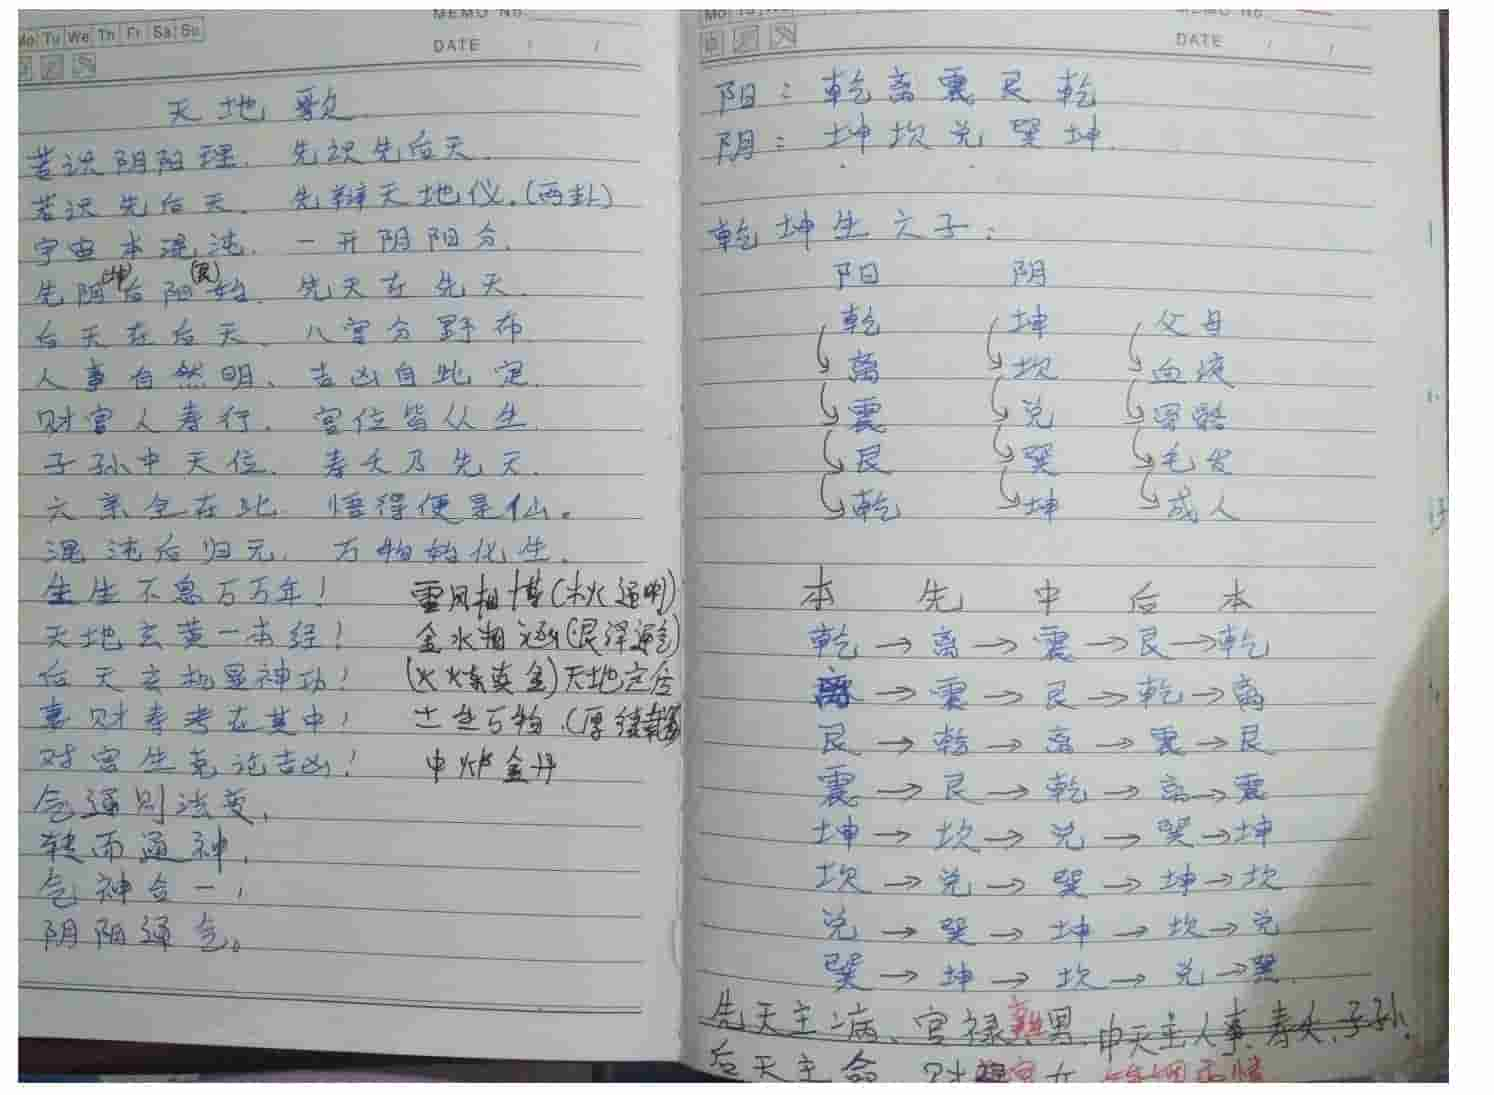 MEMO No.
Mo Tu We Th Fr Sa Su
DATE / /
天地歌
若识阴阳理、先识先后天.
若识先后天、先辩天地仪.(两卦)
宇宙本混沌、一开阴阳分.
(坤) (艮)
先阴后阳始、先天在先天.
后天在后天、八宫分野布
人事自然明、吉凶自此定.
财官人寿行、宫位皆从生.
子孙中天位、寿夭乃先天.
六亲全在此 悟得便是仙。
混沌后归元、万物始化生.
生生不息万万年! 雷风相博(木火通明)
天地玄黄一本经! 金水相涵(艮泽通气)
后天玄机显神功! (火炼真金)天地定位
事财寿考在其中! 土生万物.(厚德载
对宫生克论吉凶! 中炉金丹
气通则法变,
转而通神,
气神合一,
阴阳通气。
MEMO No.
Mo Tu
DATE / /
阳: 乾离震艮乾
阴: 坤坎兑巽坤.
乾坤生六子:
阳 阴
乾 坤 父母
离 坎 血液
震 兑 骨骼
艮 巽 毛发
乾 坤 成人
本 先 中 后 本
乾→离→震→艮→乾
离→震→艮→乾→离
艮→乾→离→震→艮
震→艮→乾→离→震
坤→坎→兑→巽→坤
坎→兑→巽→坤→坎
兑→巽→坤→坎→兑
巽→坤→坎→兑→巽.
先天主病、官禄 男. 中天主人事、寿夭、子孙.
后天主命 财 女